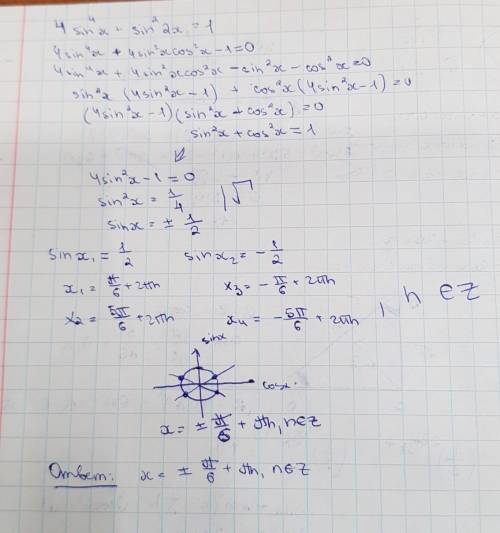 4 sin⁴x + sin²2x = 1
4sin⁴x + 4sin²x cos²x - 1 = 0
4sin⁴x + 4sin²x cos²x - sin²x - cos²x = 0
sin²x (4sin²x - 1) + cos²x (4sin²x - 1) = 0
(4sin²x - 1)(sin²x + cos²x) = 0
sin²x + cos²x = 1
4sin²x - 1 = 0
sin²x = 1/4 |√
sinx = ± 1/2
sinx₁ = 1/2 sinx₂ = - 1/2
x₁ = π/6 + 2πn x₃ = - π/6 + 2πn
x₂ = 5π/6 + 2πn x₄ = - 5π/6 + 2πn , n ∈ Z
sinx
cosx
x = ± π/6 + πn, n∈Z
Ответ: x = ± π/6 + πn, n∈Z